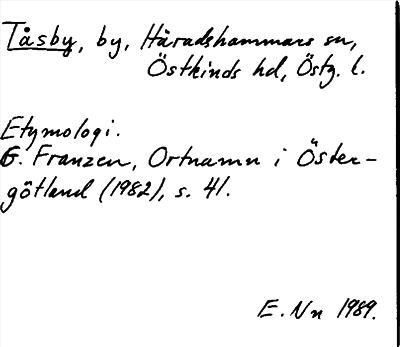 Tåsby, by, Häradshammars sn,
Östkinds hd, Östg. l.
Etymologi.
G. Franzén, Ortnamn i Öster-
götland (1982), s. 41.
E. Nn 1989.